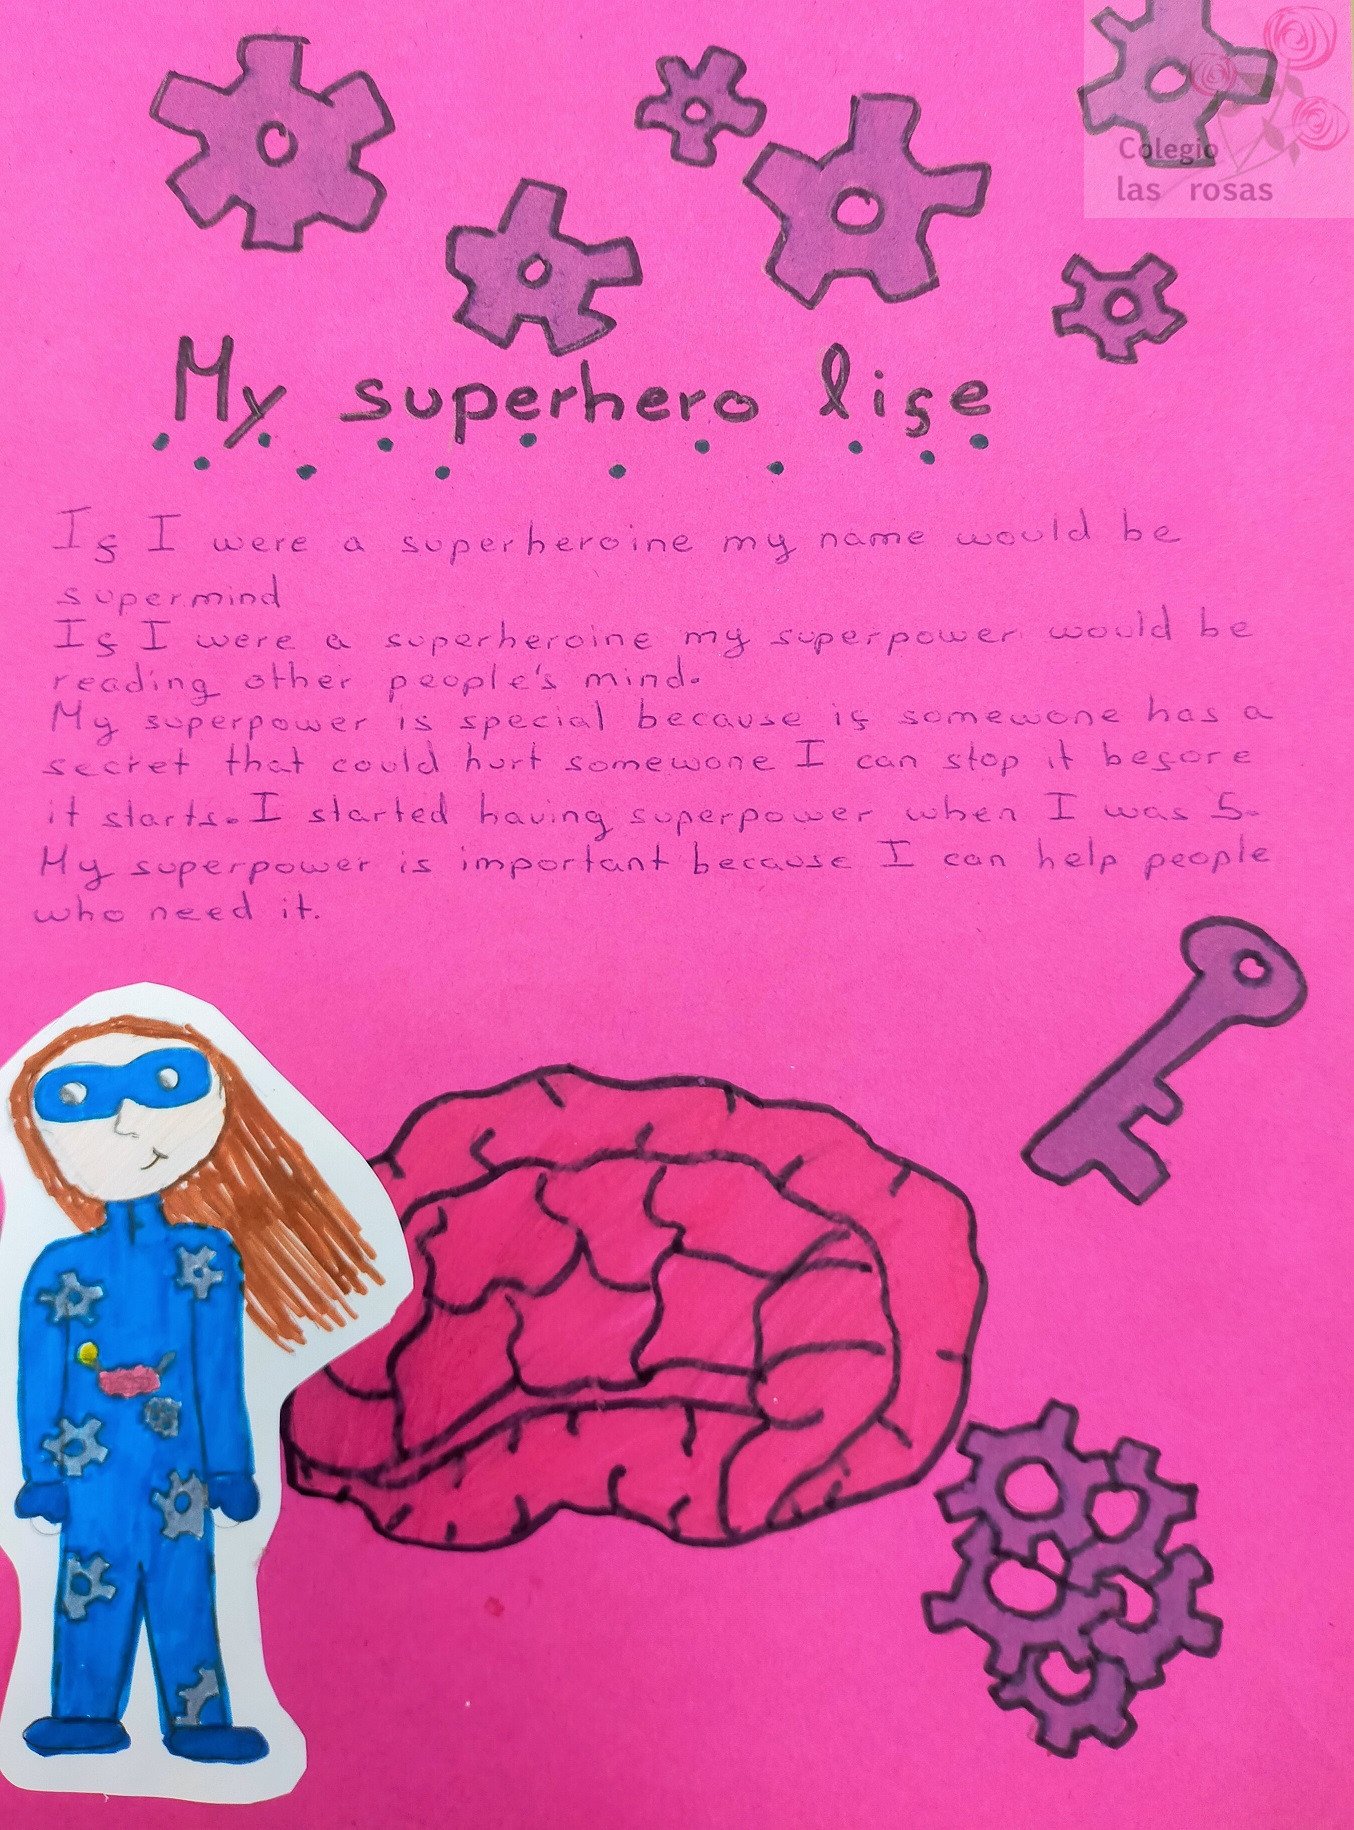 Colegio
las rosas
My superhero life
If I were a superheroine my name would be
supermind
If I were a superheroine my superpower would be
reading other people's mind.
My superpower is special because if somewone has a
secret that could hurt somewone I can stop it before
it starts. I started having superpower when I was 5.
My superpower is important because I can help people
who need it.